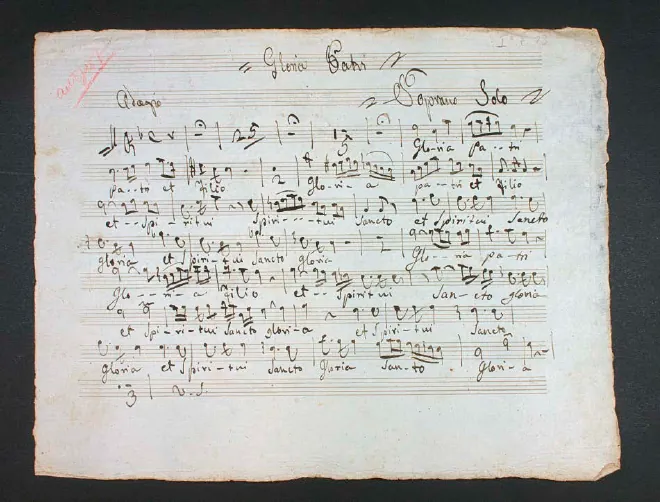 Gloria Patri
Adagio Soprano Solo
25 5
Gloria pa--tri
pa--tri et Filio 2 Glo-ri-a pa--tri et Filio
et---Spi--ritui Spiri----tui Sancto et Spiritui Sancto
gloria et Spiri-tui Sancto gloria 2 Glo---ria pa-tri
Glo---ri-a Filio et---Spiritui San-cto gloria
et Spi-ri-tui Sancto glori-a et Spiri-tui Sancto
Gloria et Spiri-tui Sancto Gloria San--to Glori-a
3 V.S.